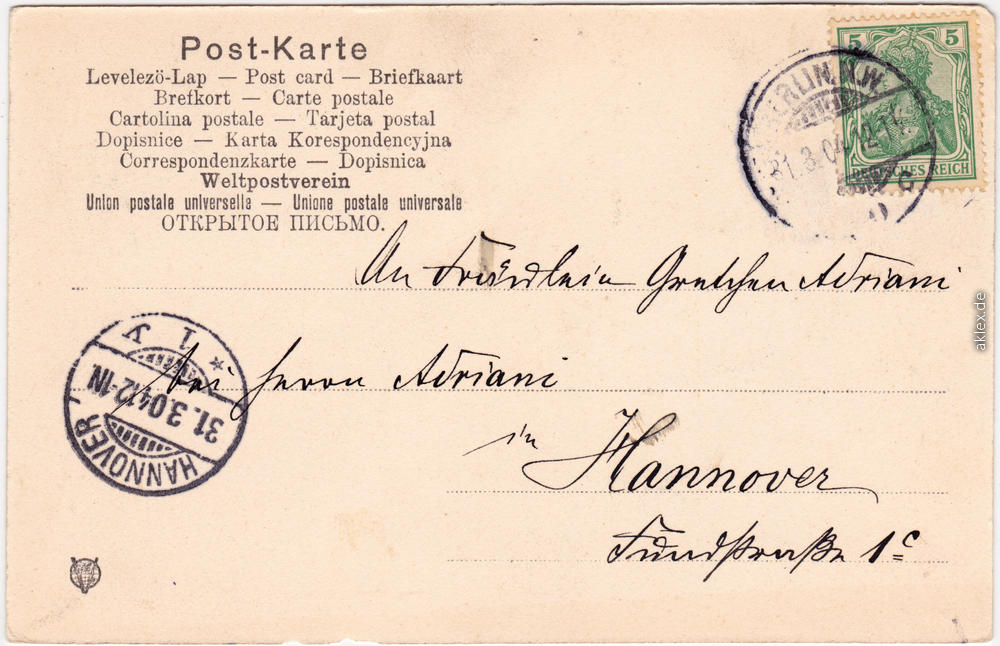 Post-Karte
Levelezö-Lap — Post card — Briefkaart
Brefkort — Carte postale
Cartolina postale — Tarjeta postal
Dopisnice — Karta Korespondencyjna
Correspondenzkarte — Dopisnica
Weltpostverein
Union postale universelle — Unione postale universale
ОТКРЫТОЕ ПИСЬМО.
5 5
DEUTSCHES REICH
BERLIN, N.W.
31.3.04.12-1
C
An Fräulein Gretchen Adriani
bei Herrn Adriani
in Hannover
Fundstraße 1c
HANNOVER 1
31.3.04.12-1N.
* 1 y
aklex.de